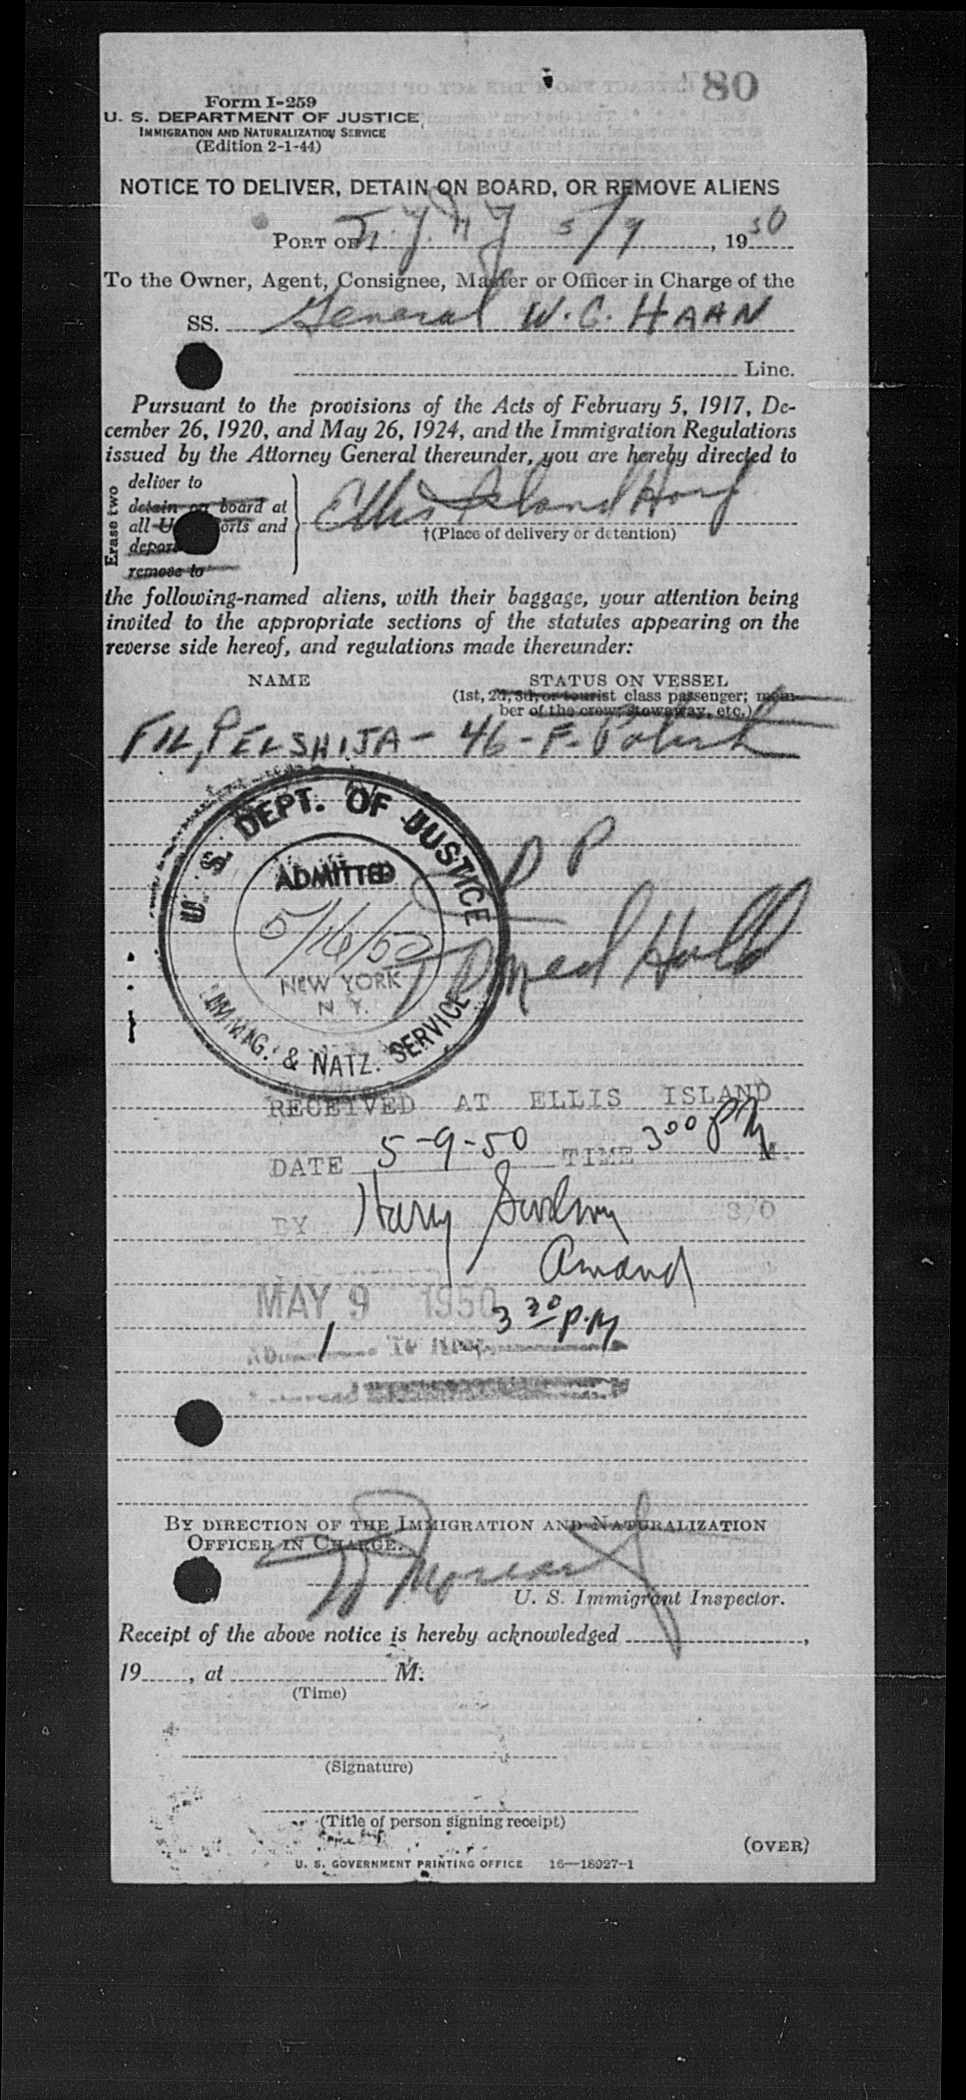 80
Form I-259
U. S. DEPARTMENT OF JUSTICE
IMMIGRATION AND NATURALIZATION SERVICE
(Edition 2-1-44)
NOTICE TO DELIVER, DETAIN ON BOARD, OR REMOVE ALIENS
PORT OF N.Y. N Y 5/9, 1950
To the Owner, Agent, Consignee, Master or Officer in Charge of the
SS. General W. C. HAAN
Line.
Pursuant to the provisions of the Acts of February 5, 1917, De-
cember 26, 1920, and May 26, 1924, and the Immigration Regulations
issued by the Attorney General thereunder, you are hereby directed to
Erase two
deliver to
detain on board at
all U. ports and
depor
remove to
Ellis Island
†(Place of delivery or detention)
the following-named aliens, with their baggage, your attention being
invited to the appropriate sections of the statutes appearing on the
reverse side hereof, and regulations made thereunder:
NAME STATUS ON VESSEL
(1st, 2d, 3d, or tourist class passenger; mem-
ber of the crew, stowaway, etc.)
FIL, PELSHIJA - 46 - F - Polish
U. S. DEPT. OF JUSTICE
ADMITTED
5/16/50
NEW YORK
N. Y.
IMMIG. & NATZ. SERVICE
D P
Hold
RECEIVED AT ELLIS ISLAND
DATE 5-9-50 TIME 3 00 PM M.
BY Harry
MAY 9 1950
3 30 P.M
1
BY DIRECTION OF THE IMMIGRATION AND NATURALIZATION
OFFICER IN CHARGE.
U. S. Immigrant Inspector.
Receipt of the above notice is hereby acknowledged ,
19 , at M.
(Time)
(Signature)
(Title of person signing receipt)
(OVER)
U. S. GOVERNMENT PRINTING OFFICE 16—18927-1